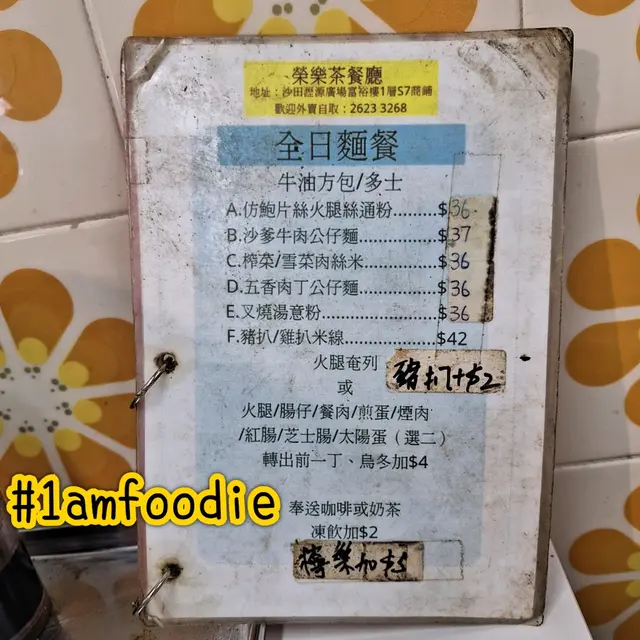 榮樂茶餐廳
地址：沙田瀝源廣場富裕樓1層S7商鋪
歡迎外賣自取：2623 3268
全日麵餐
牛油方包/多士
A.仿鮑片絲火腿絲通粉.........$36
B.沙爹牛肉公仔麵................$37
C.榨菜/雪菜肉絲米...............$36
D.五香肉丁公仔麵................$36
E.叉燒湯意粉.......................$36
F.豬扒/雞扒米線...................$42
火腿奄列
豬扒+$2
或
火腿/腸仔/餐肉/煎蛋/煙肉
/紅腸/芝士腸/太陽蛋（選二）
轉出前一丁、烏冬加$4
#1amfoodie
奉送咖啡或奶茶
凍飲加$2
樂加